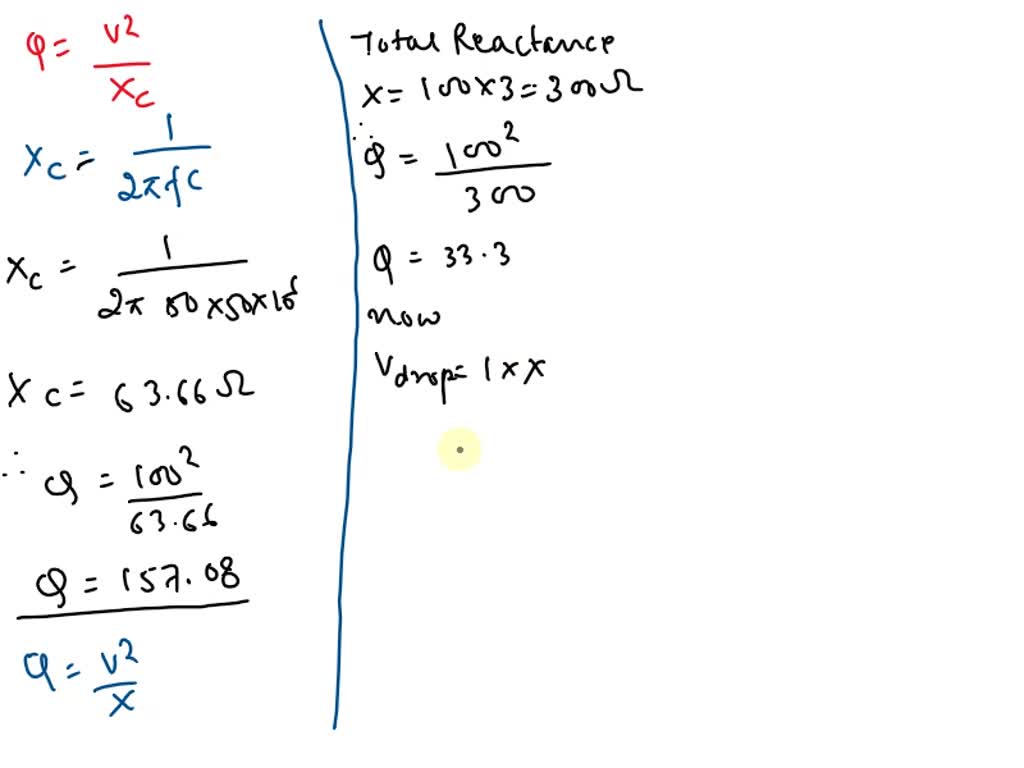 Q = V²/Xc
Xc = 1/2πfC
Xc = 1/2π 50×50×10⁶
Xc = 63.66Ω
∴ Q = 100²/63.66
Q = 157.08
Q = V²/X
Total Reactance
X = 100×3 = 300Ω
∴ Q = 100²/300
Q = 33.3
now
Vdrop = I×X